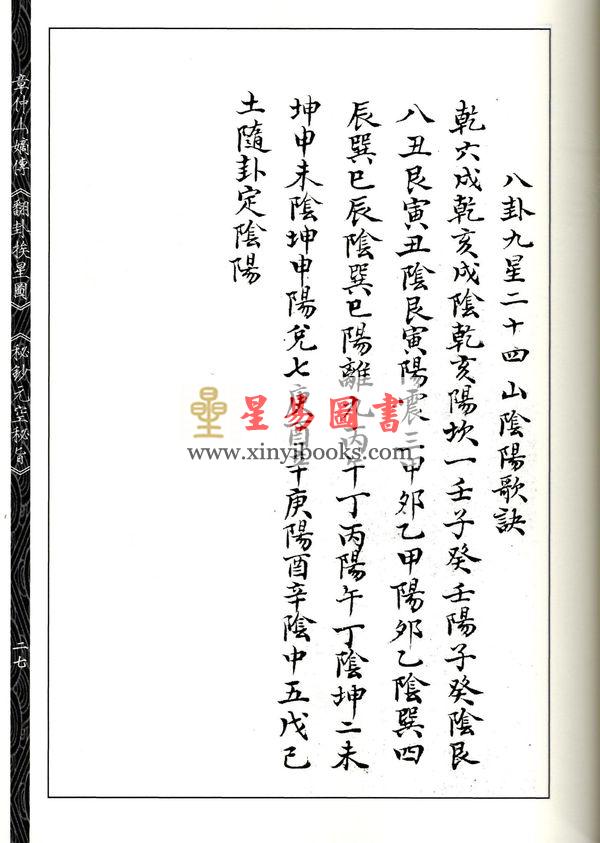 八卦九星二十四山陰陽歌訣
乾六戌乾亥戌陰乾亥陽坎一壬子癸壬陽子癸陰艮
八丑艮寅丑陰艮寅陽震三甲卯乙甲陽卯乙陰巽四
辰巽巳辰陰巽巳陽離九丙午丁丙陽午丁陰坤二未
坤申未陰坤申陽兌七庚酉辛庚陽酉辛陰中五戊己
土隨卦定陰陽
章仲山嫡傳《翻卦挨星圖》《秘鈔元空秘旨》
二七
星易圖書
www.xinyibooks.com